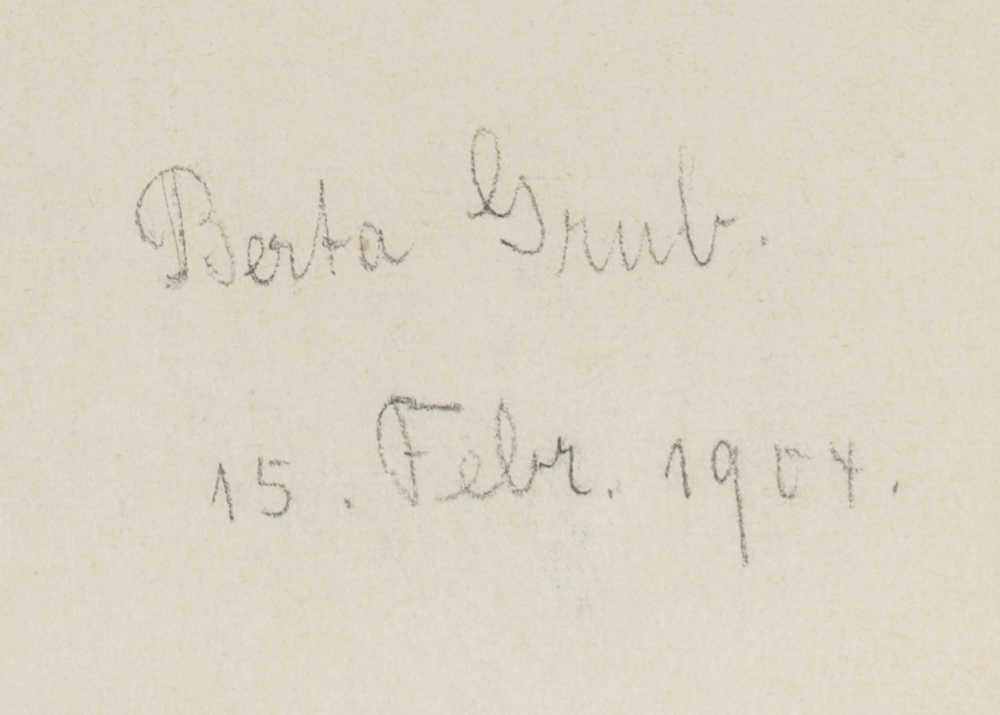 Berta Grub.
15. Febr. 1904.